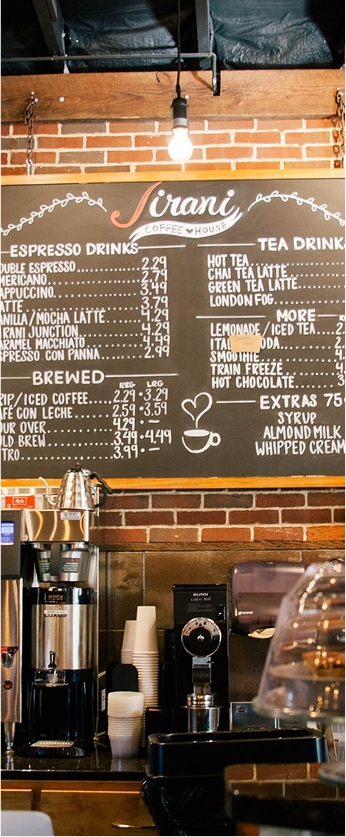 Jirani
COFFEE HOUSE
ESPRESSO DRINKS
OUBLE ESPRESSO 2.29
MERICANO 2.79
APPUCCINO 3.49
ATTE 3.79
ILLA/MOCHA LATTE 4.29
IRANI JUNCTION 4.29
ARAMEL MACCHIATO 4.49
SPRESSO CON PANNA 2.99
BREWED
REG. LRG
RIP/ICED COFFEE 2.59 3.29
AFÉ CON LECHE 2.59
OUR OVER 4.29
OLD BREW 3.49 4.49
TRO 3.99
TEA DRINK
HOT TEA
CHAI TEA LATTE
GREEN TEA LATTE
LONDON FOG
MORE
LEMONADE/ICED TEA 2
ITA ODA
SMOOTHIE
TRAIN FREEZE 4
HOT CHOCOLATE 3
EXTRAS 75
SYRUP
ALMOND MILK
WHIPPED CREAM
BUNN
Coffee Mill